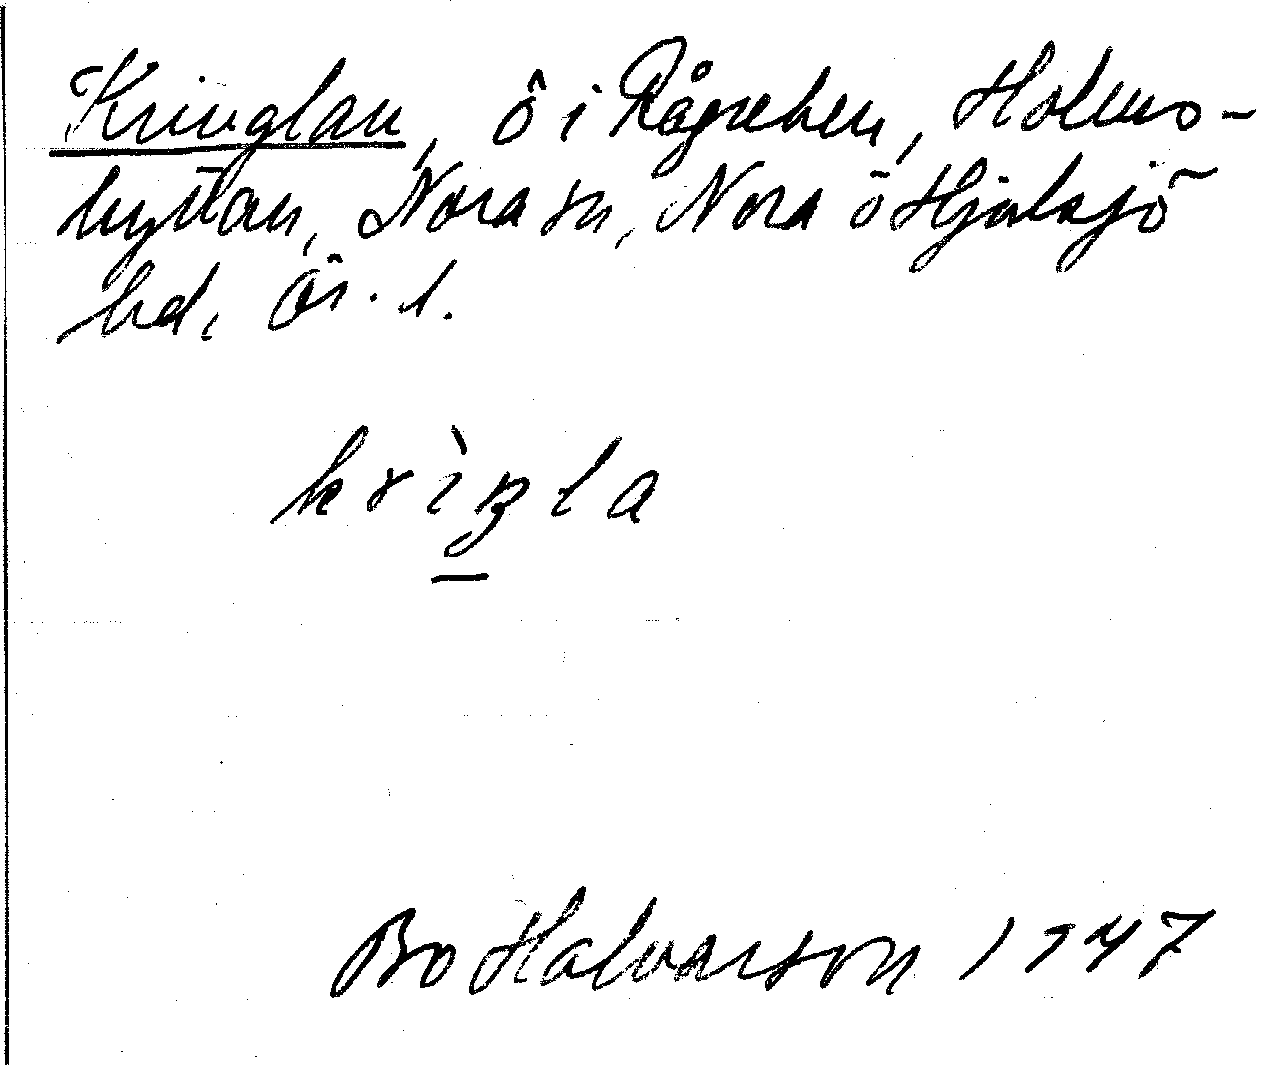 Kringlan, ö i Rågreken, Holms-
hyttan, Nora sn, Nora ö Hjulsjö
hd, Ör. l.
krìŋla
Bo Halvarson 1947